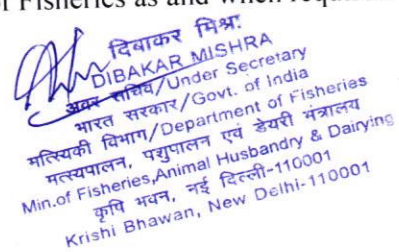 of Fisheries as and when requi
दिवाकर मिश्र:
DIBAKAR MISHRA
अवर सचिव/Under Secretary
भारत सरकार/Govt. of India
मत्स्यिकी विभाग/Department of Fisheries
मत्स्यपालन, पशुपालन एवं डेयरी मंत्रालय
Min.of Fisheries,Animal Husbandry & Dairying
कृषि भवन, नई दिल्ली-110001
Krishi Bhawan, New Delhi-110001